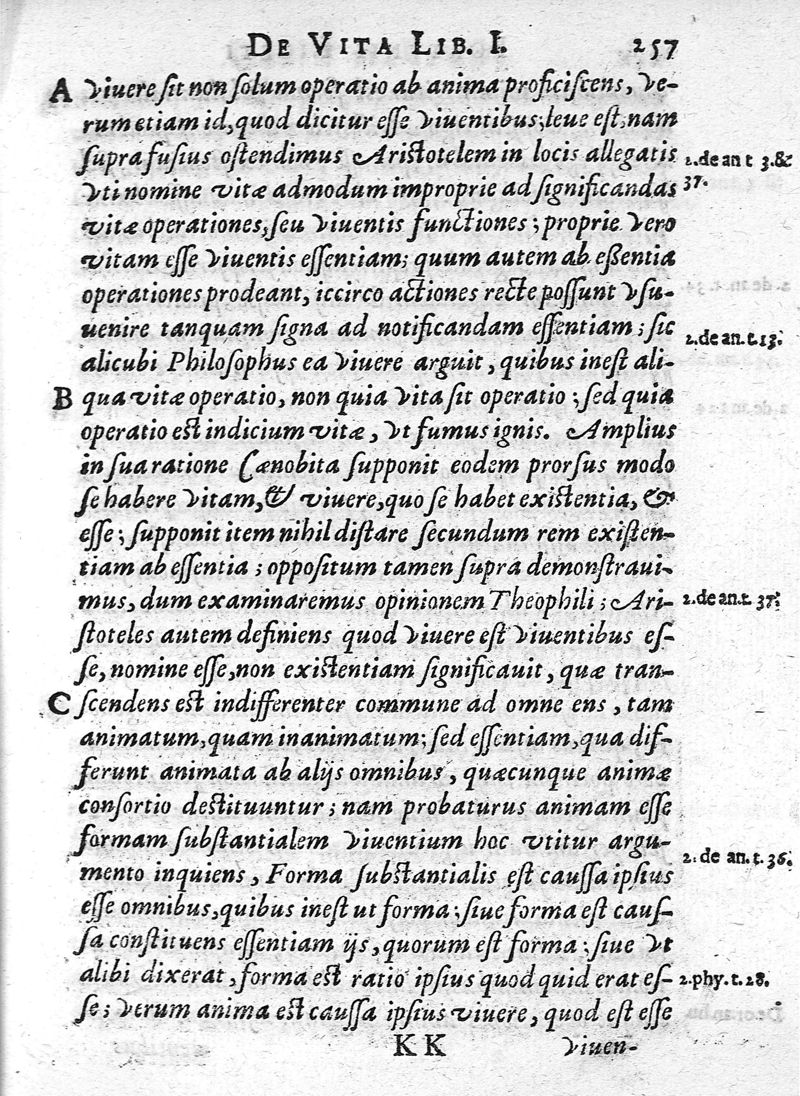 DE VITA LIB. I. 257
A viuere sit non solum operatio ab anima proficiscens, ve-
rum etiam id, quod dicitur esse viuentibus; leue est, nam
supra fusius ostendimus Aristotelem in locis allegatis 2. de an t 3. &
vti nomine vitæ admodum improprie ad significandas 37.
vitæ operationes, seu viuentis functiones; proprie vero
vitam esse viuentis essentiam; quum autem ab essentia
operationes prodeant, iccirco actiones recte possunt vsu-
uenire tanquam signa ad notificandam essentiam; sic
alicubi Philosophus ea viuere arguit, quibus inest ali- 2. de an. t. 13.
B qua vitæ operatio, non quia vita sit operatio; sed quia
operatio est indicium vitæ, vt fumus ignis. Amplius
in sua ratione Cænobita supponit eodem prorsus modo
se habere vitam, & viuere, quo se habet existentia, &
esse; supponit item nihil distare secundum rem existen-
tiam ab essentia; oppositum tamen supra demonstraui-
mus, dum examinaremus opinionem Theophili; Ari- 2. de an. t. 37.
stoteles autem definiens quod viuere est viuentibus es-
se, nomine esse, non existentiam significauit, quæ tran-
C scendens est indifferenter commune ad omne ens, tam
animatum, quam inanimatum; sed essentiam, qua dif-
ferunt animata ab alijs omnibus, quæcunque animæ
consortio destituuntur; nam probaturus animam esse
formam substantialem viuentium hoc vtitur argu-
mento inquiens, Forma substantialis est caussa ipsius 2. de an. t. 36.
esse omnibus, quibus inest ut forma; siue forma est caus-
sa constituens essentiam ijs, quorum est forma; siue vt
alibi dixerat, forma est ratio ipsius quod quid erat es- 2. phy. t. 28.
se; verum anima est caussa ipsius viuere, quod est esse
KK viuen-